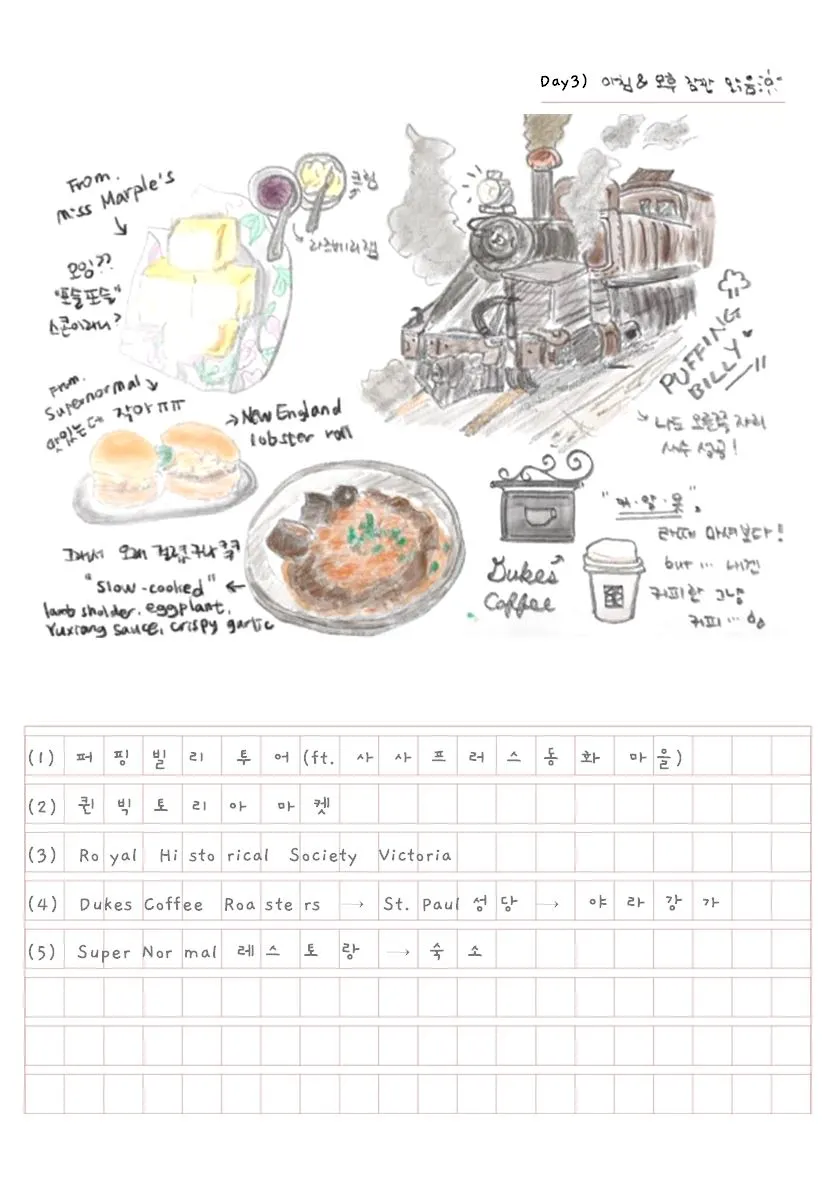 Day3) 아침 & 오후 잠깐 맑음
From.
miss Marple's
크림
라즈베리잼
모임??
"포슬포슬"
스콘이라니?
From.
Supernormal
맛있는데 작아ㅠㅠ
New England
lobster roll
PUFFING
BILLY
나도 오른쪽 자리
사수 성공!
그래서 오래 걸렸구나 쿡쿡
"slow-cooked"
lamb sholder, eggplant,
Yuxiang sauce, crispy garlic
Dukes
Coffee
라떼 마셔보다!
but… 내겐
커피란 그냥
커피…
(1) 퍼핑빌리투어(ft. 사사프러스동화마을)
(2) 퀸빅토리아마켓
(3) Royal Historical Society Victoria
(4) Dukes Coffee Roasters → St. Paul성당 → 야라강가
(5) Super Normal 레스토랑 → 숙소